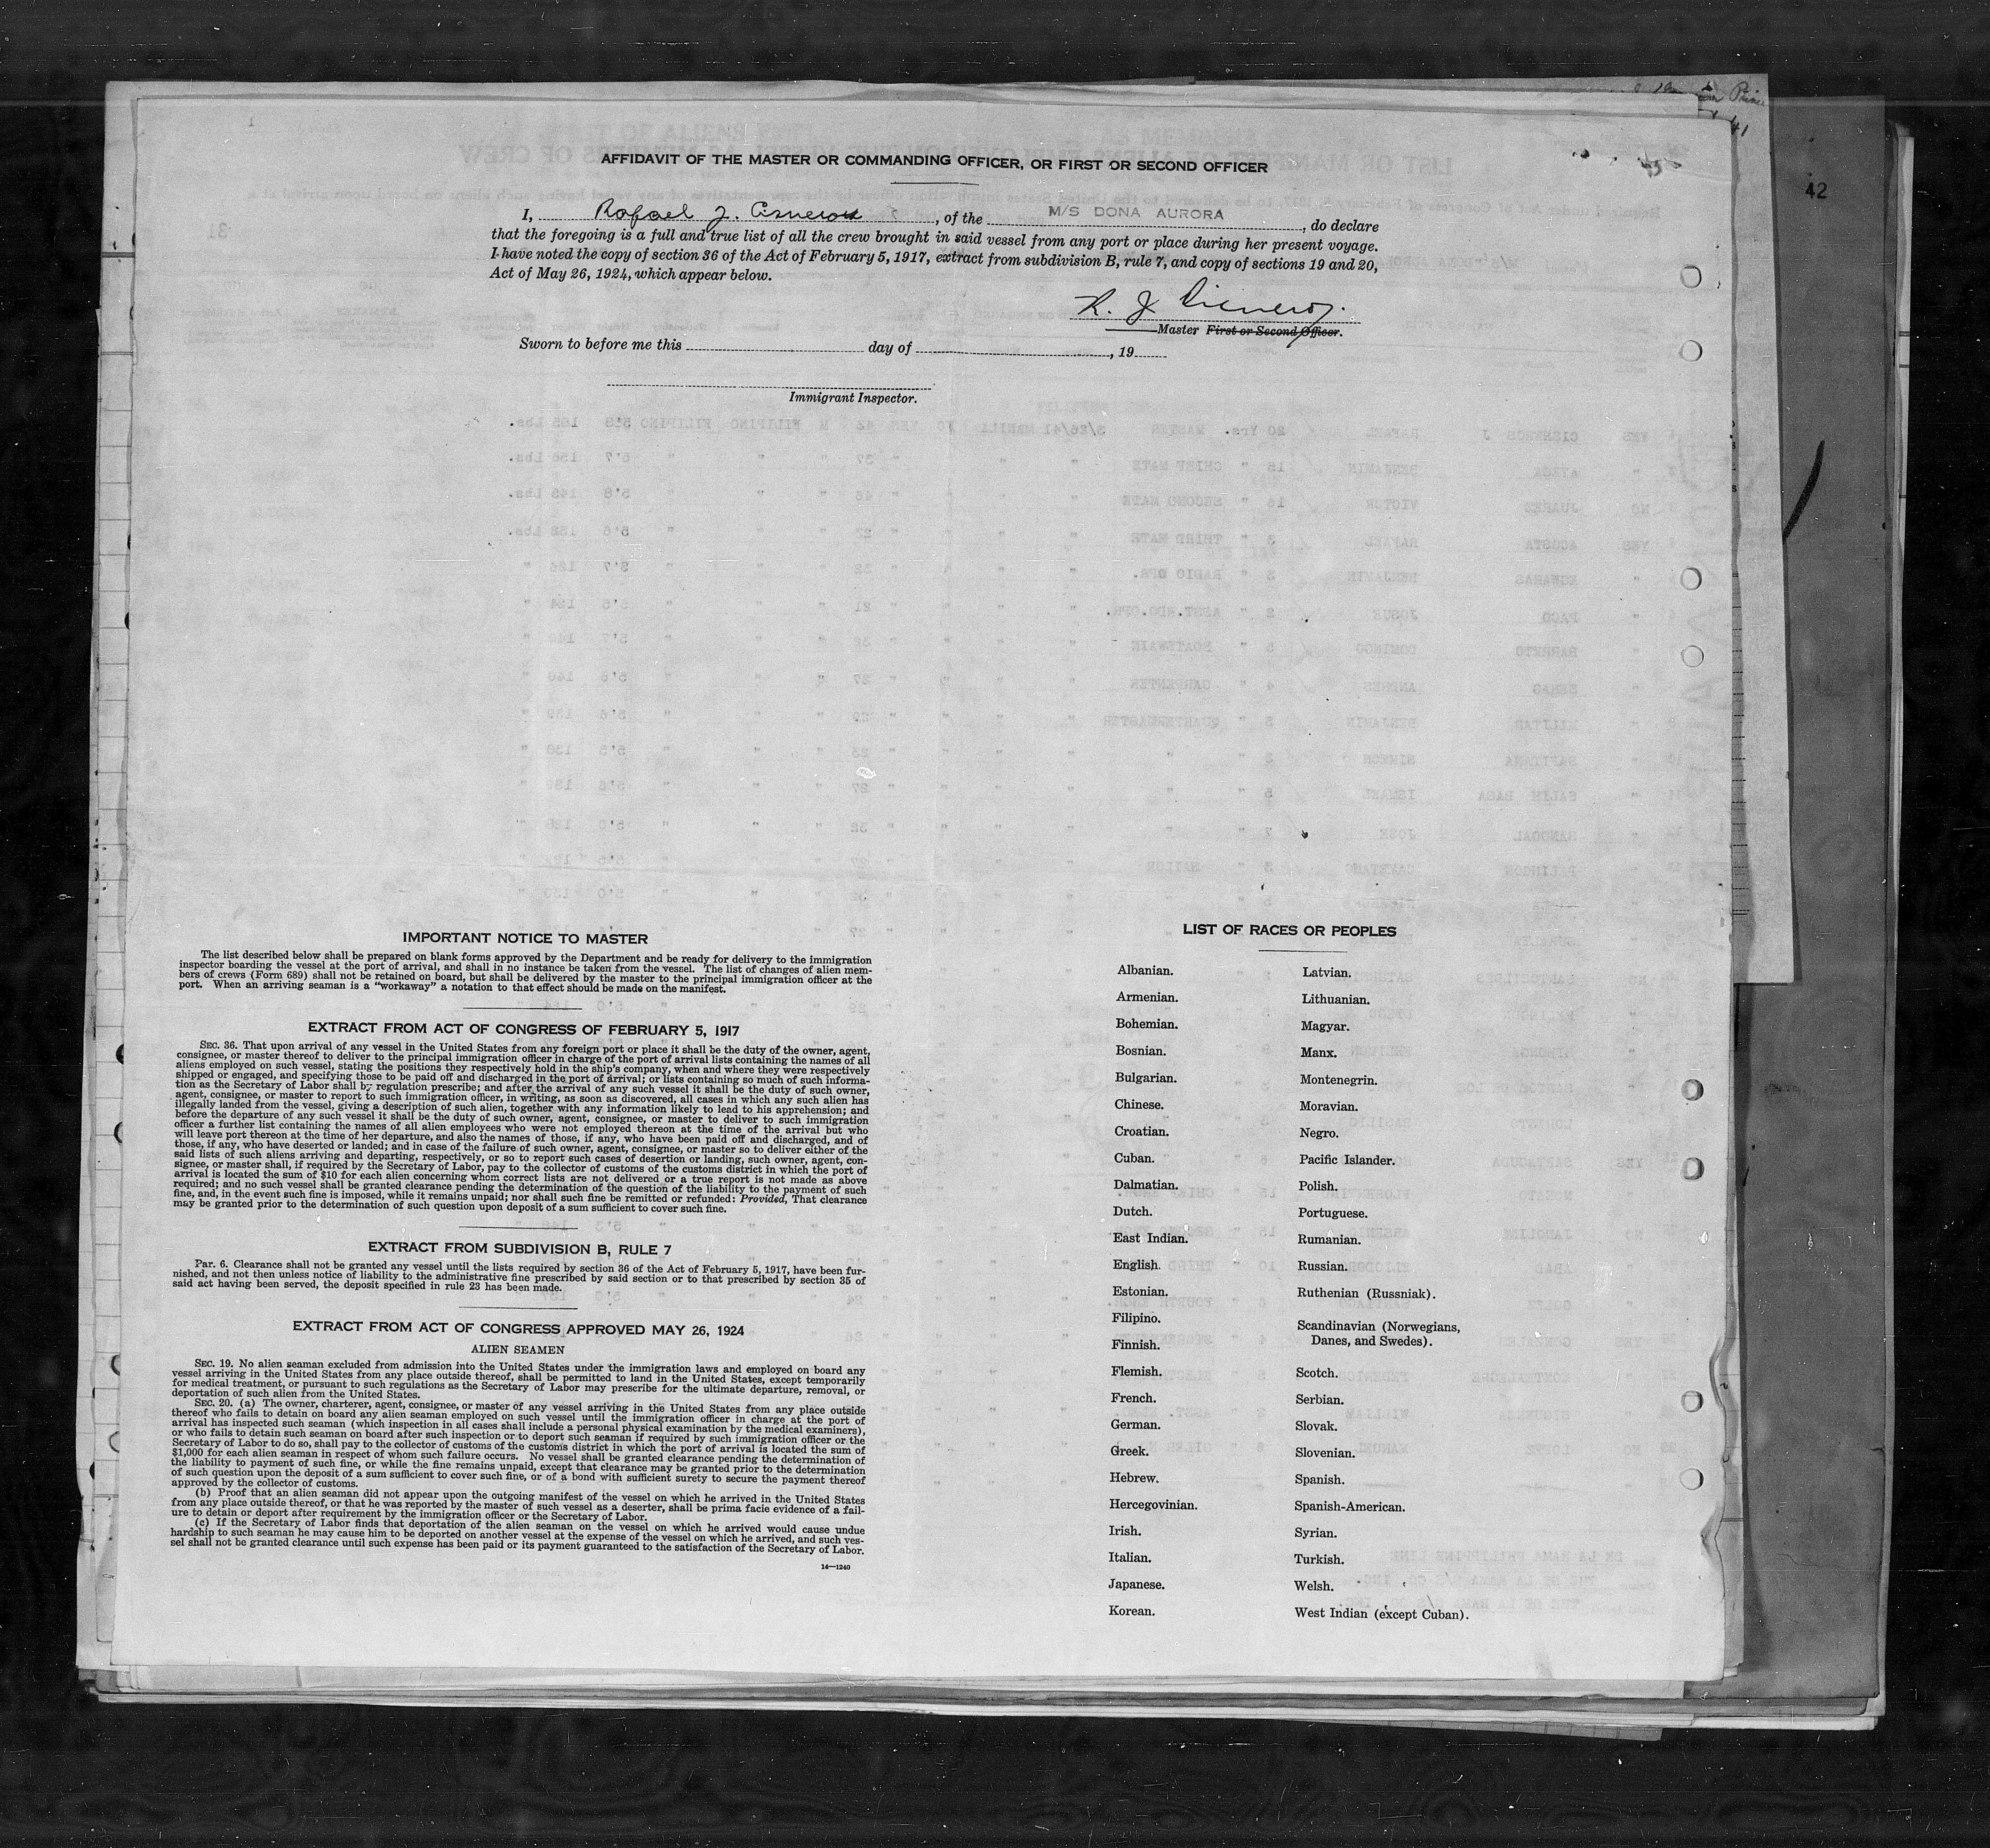 AFFIDAVIT OF THE MASTER OR COMMANDING OFFICER, OR FIRST OR SECOND OFFICER
I, Rafael J. Cisneros, of the M/S DONA AURORA, do declare
that the foregoing is a full and true list of all the crew brought in said vessel from any port or place during her present voyage.
I have noted the copy of section 36 of the Act of February 5, 1917, extract from subdivision B, rule 7, and copy of sections 19 and 20,
Act of May 26, 1924, which appear below.
R. J. Cisneros
Master First or Second Officer.
Sworn to before me this day of , 19
Immigrant Inspector.
42
IMPORTANT NOTICE TO MASTER
The list described below shall be prepared on blank forms approved by the Department and be ready for delivery to the immigration
inspector boarding the vessel at the port of arrival, and shall in no instance be taken from the vessel. The list of changes of alien mem-
bers of crews (Form 689) shall not be retained on board, but shall be delivered by the master to the principal immigration officer at the
port. When an arriving seaman is a "workaway" a notation to that effect should be made on the manifest.
EXTRACT FROM ACT OF CONGRESS OF FEBRUARY 5, 1917
SEC. 36. That upon arrival of any vessel in the United States from any foreign port or place it shall be the duty of the owner, agent,
consignee, or master thereof to deliver to the principal immigration officer in charge of the port of arrival lists containing the names of all
aliens employed on such vessel, stating the positions they respectively hold in the ship's company, when and where they were respectively
shipped or engaged, and specifying those to be paid off and discharged in the port of arrival; or lists containing so much of such informa-
tion as the Secretary of Labor shall by regulation prescribe; and after the arrival of any such vessel it shall be the duty of such owner,
agent, consignee, or master to report to such immigration officer, in writing, as soon as discovered, all cases in which any such alien has
illegally landed from the vessel, giving a description of such alien, together with any information likely to lead to his apprehension; and
before the departure of any such vessel it shall be the duty of such owner, agent, consignee, or master to deliver to such immigration
officer a further list containing the names of all alien employees who were not employed thereon at the time of the arrival but who
will leave port thereon at the time of her departure, and also the names of those, if any, who have been paid off and discharged, and of
those, if any, who have deserted or landed; and in case of the failure of such owner, agent, consignee, or master so to deliver either of the
said lists of such aliens arriving and departing, respectively, or so to report such cases of desertion or landing, such owner, agent, con-
signee, or master shall, if required by the Secretary of Labor, pay to the collector of customs of the customs district in which the port of
arrival is located the sum of $10 for each alien concerning whom correct lists are not delivered or a true report is not made as above
required; and no such vessel shall be granted clearance pending the determination of the question of the liability to the payment of such
fine, and, in the event such fine is imposed, while it remains unpaid; nor shall such fine be remitted or refunded: Provided, That clearance
may be granted prior to the determination of such question upon deposit of a sum sufficient to cover such fine.
EXTRACT FROM SUBDIVISION B, RULE 7
Par. 6. Clearance shall not be granted any vessel until the lists required by section 36 of the Act of February 5, 1917, have been fur-
nished, and not then unless notice of liability to the administrative fine prescribed by said section or to that prescribed by section 35 of
said act having been served, the deposit specified in rule 23 has been made.
EXTRACT FROM ACT OF CONGRESS APPROVED MAY 26, 1924
ALIEN SEAMEN
SEC. 19. No alien seaman excluded from admission into the United States under the immigration laws and employed on board any
vessel arriving in the United States from any place outside thereof, shall be permitted to land in the United States, except temporarily
for medical treatment, or pursuant to such regulations as the Secretary of Labor may prescribe for the ultimate departure, removal, or
deportation of such alien from the United States.
SEC. 20. (a) The owner, charterer, agent, consignee, or master of any vessel arriving in the United States from any place outside
thereof who fails to detain on board any alien seaman employed on such vessel until the immigration officer in charge at the port of
arrival has inspected such seaman (which inspection in all cases shall include a personal physical examination by the medical examiners),
or who fails to detain such seaman on board after such inspection or to deport such seaman if required by such immigration officer or the
Secretary of Labor to do so, shall pay to the collector of customs of the customs district in which the port of arrival is located the sum of
$1,000 for each alien seaman in respect of whom such failure occurs. No vessel shall be granted clearance pending the determination of
the liability to payment of such fine, or while the fine remains unpaid, except that clearance may be granted prior to the determination
of such question upon the deposit of a sum sufficient to cover such fine, or of a bond with sufficient surety to secure the payment thereof
approved by the collector of customs.
(b) Proof that an alien seaman did not appear upon the outgoing manifest of the vessel on which he arrived in the United States
from any place outside thereof, or that he was reported by the master of such vessel as a deserter, shall be prima facie evidence of a fail-
ure to detain or deport after requirement by the immigration officer or the Secretary of Labor.
(c) If the Secretary of Labor finds that deportation of the alien seaman on the vessel on which he arrived would cause undue
hardship to such seaman he may cause him to be deported on another vessel at the expense of the vessel on which he arrived, and such ves-
sel shall not be granted clearance until such expense has been paid or its payment guaranteed to the satisfaction of the Secretary of Labor.
14—1240
LIST OF RACES OR PEOPLES
Albanian.
Armenian.
Bohemian.
Bosnian.
Bulgarian.
Chinese.
Croatian.
Cuban.
Dalmatian.
Dutch.
East Indian.
English.
Estonian.
Filipino.
Finnish.
Flemish.
French.
German.
Greek.
Hebrew.
Hercegovinian.
Irish.
Italian.
Japanese.
Korean.
Latvian.
Lithuanian.
Magyar.
Manx.
Montenegrin.
Moravian.
Negro.
Pacific Islander.
Polish.
Portuguese.
Rumanian.
Russian.
Ruthenian (Russniak).
Scandinavian (Norwegians,
Danes, and Swedes).
Scotch.
Serbian.
Slovak.
Slovenian.
Spanish.
Spanish-American.
Syrian.
Turkish.
Welsh.
West Indian (except Cuban).